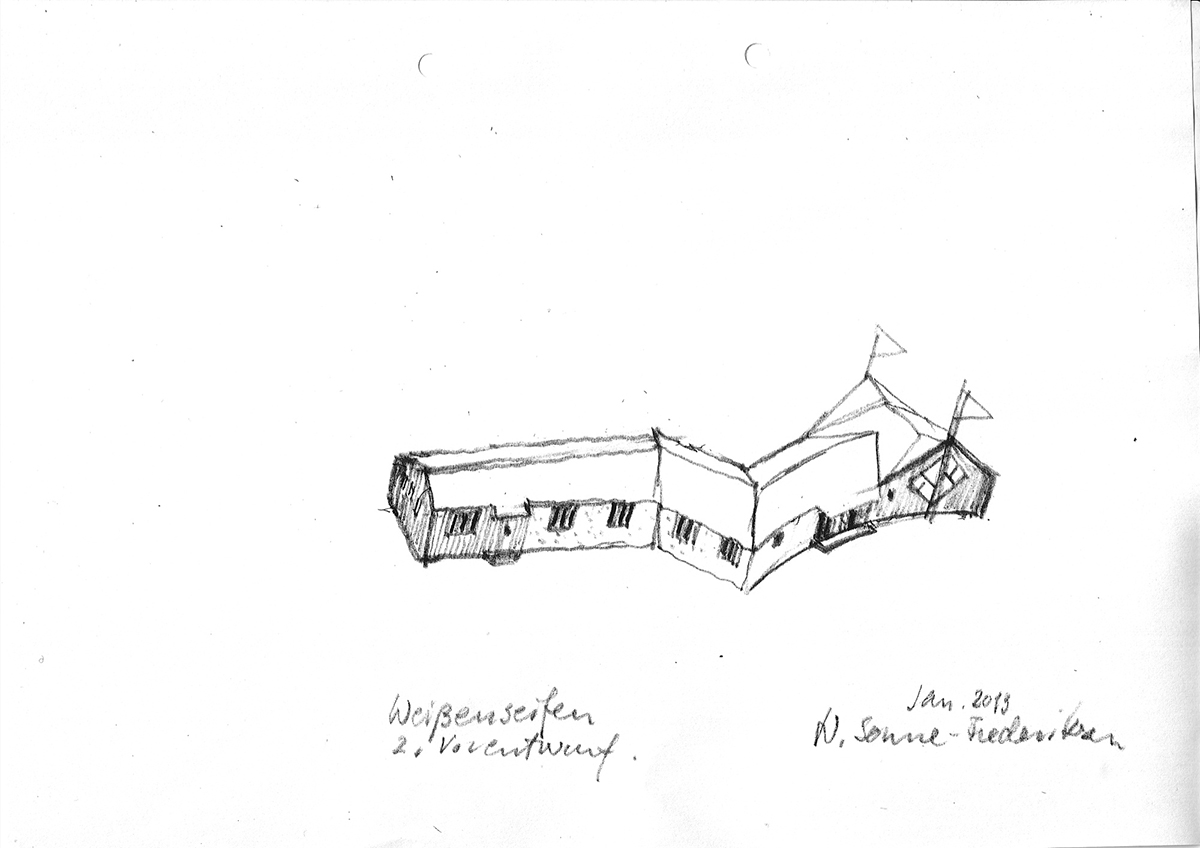 Weißenseifen
2. Vorentwurf.
Jan. 2013
N. Sonne-Frederiksen